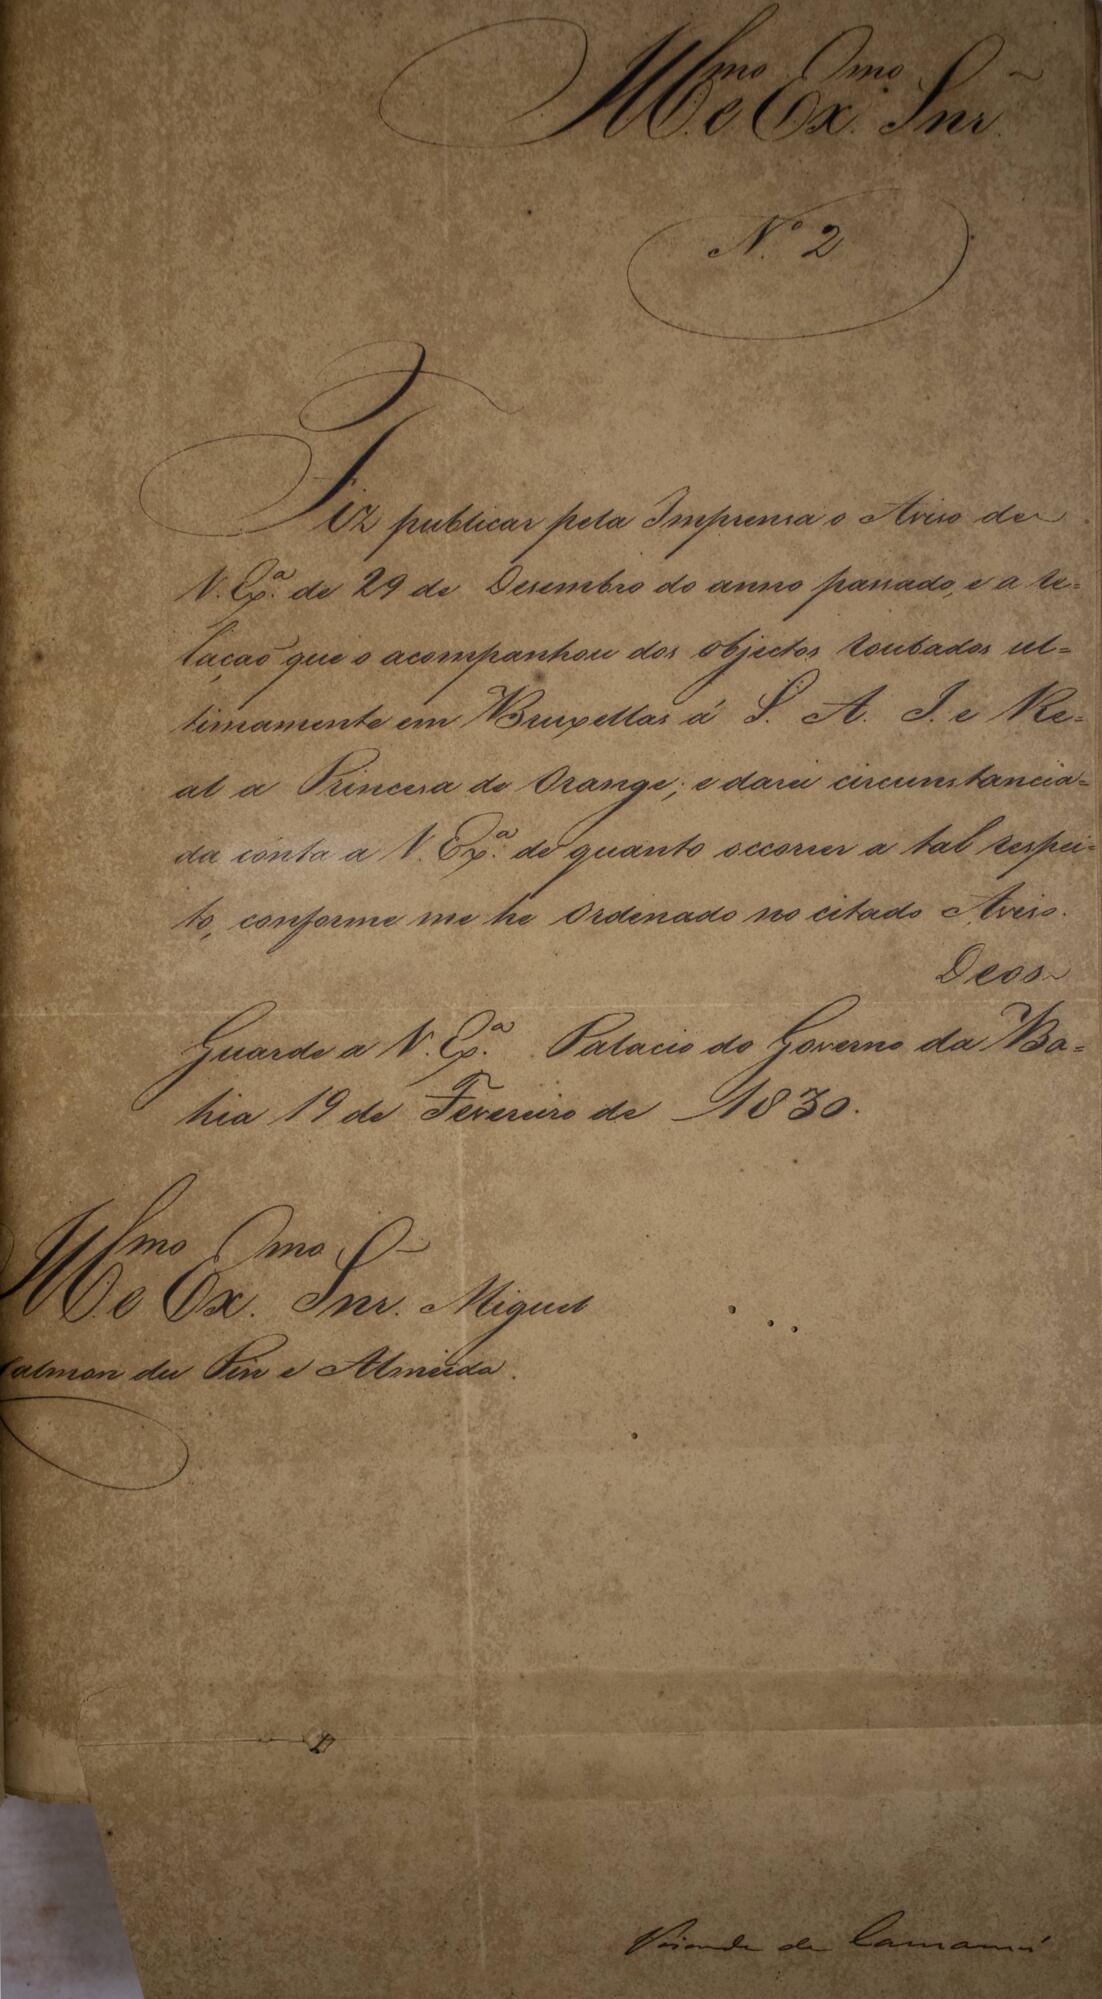 Illmo e Exmo Snr
Nº 2
Fiz publicar pela Imprensa o Aviso de
V. Exª. de 29 de Desembro do anno passado, e a re-
lação que o acompanhou dos objectos roubados ul-
timamente em Bruxellas á S. A. I. e Re-
al a Princesa de Orange; e darei circunstancia-
da conta a V. Exª. de quanto occorrer a tal respei-
to, conforme me he Ordenado no citado Aviso.
Deos
Guarde a V. Exª. Palacio do Governo da Ba-
hia 19 de Fevereiro de 1830.
Illmo e Exmo Snr. Miguel
Calmon du Pin e Almeida.
Visconde de Camamú